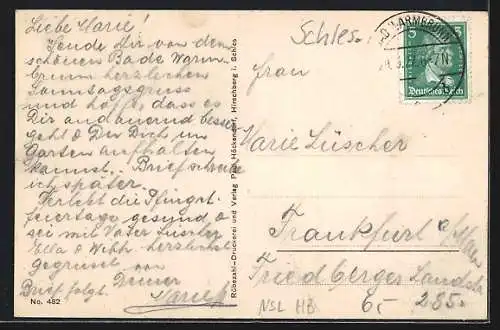 Liebe Marie!
Sende Dir von dem
schönen Bade Warm-
brunn herzlichen
Sonntagsgruss
und hoffe, dass es
Dir andauernd besser
geht & Du Dich im
Garten aufhalten
kannst. Brief schreibe
ich später.
Verlebt die Pfingst-
feiertage gesund &
sei mit Vater Lüscher
Ella & Willy herzlichst
gegrüsst von
Deiner
Brief folgt.
Marie
No. 482
Rübezahl-Druckerei und Verlag Paul Höckendorf, Hirschberg i. Schles
Schles.
WARMBRUNN
5 5
Deutsches Reich
Frau
Marie Lüscher
Frankfurt a/Main
Friedberger Landstr
285.
NSL HB
6,-